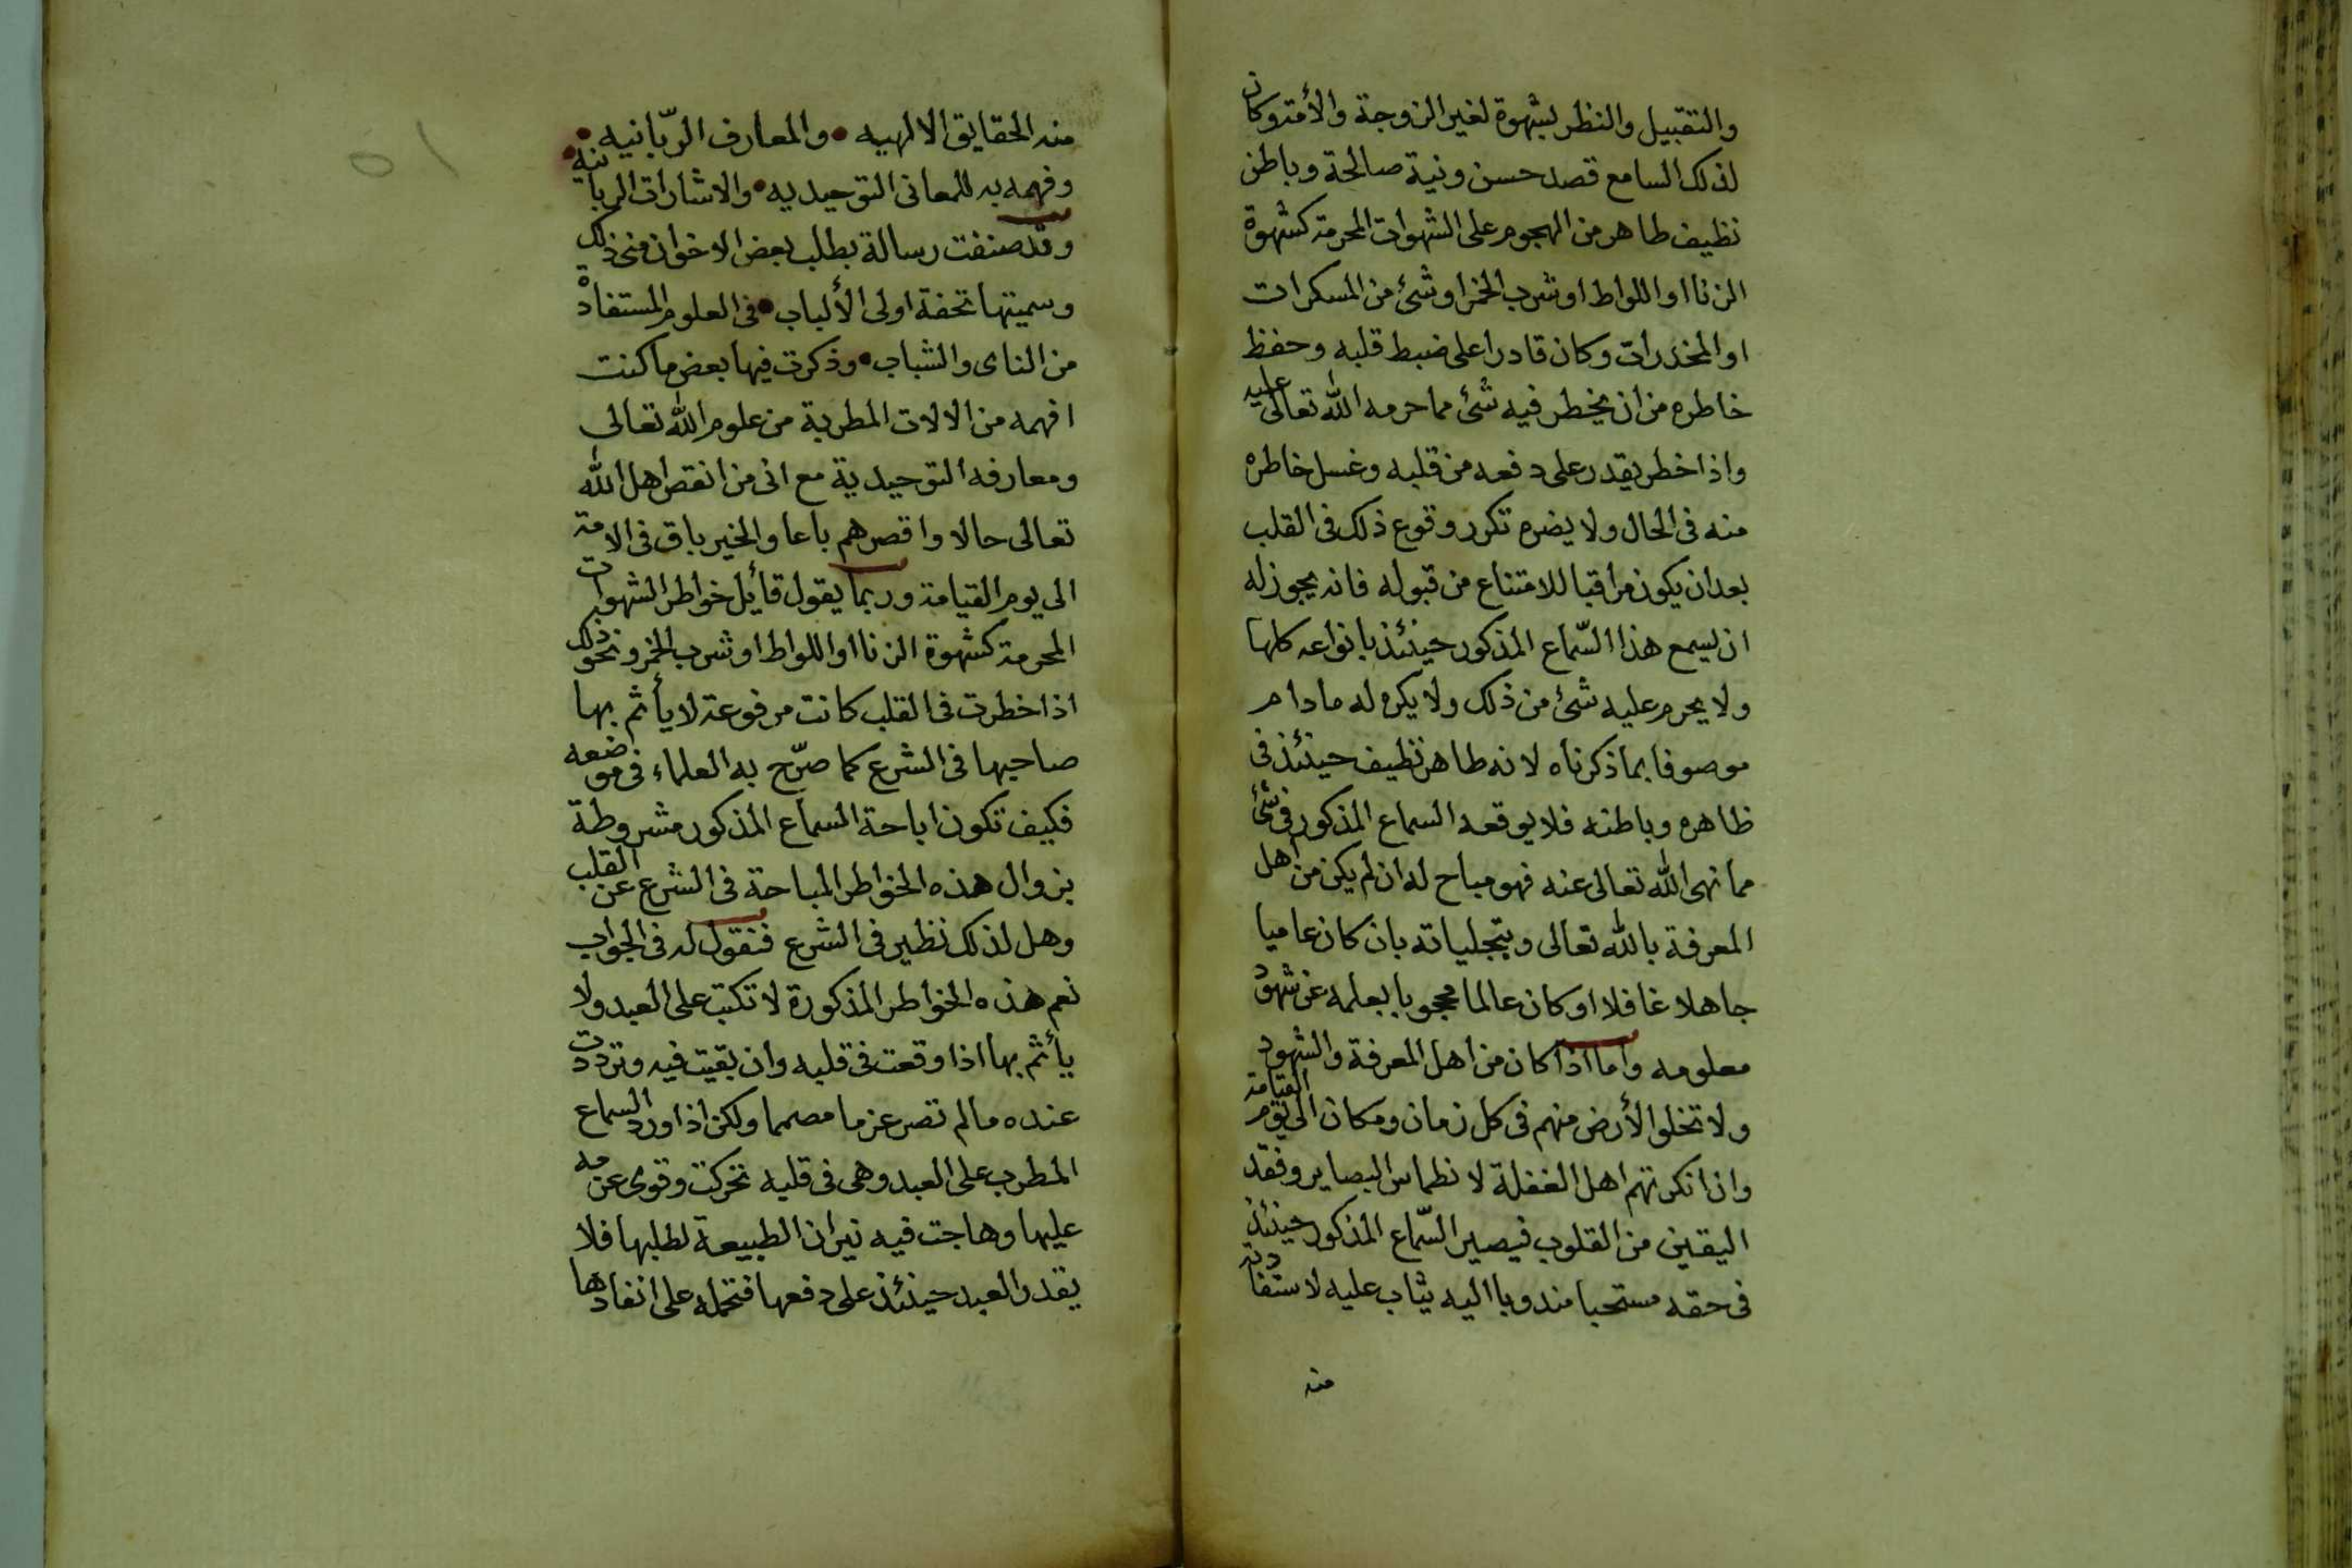 والتقبيل والنظر بشهوة لغير الزوجة والأمة وكان
لذلك السامع قصد حسن ونية صالحة وباطن
نظيف طاهر من الهجوم على الشهوات المحرمة كشهوة
الزنا او اللواط او شرب الخمر او شئ من المسكرات
او المخدرات وكان قادرا على ضبط قلبه وحفظ
خاطره من ان يخطر فيه شئ مما حرمه الله تعالى عليه
واذا خطر يقدر على دفعه من قلبه وغسل خاطره
منه فى الحال ولا يضره تكرر وقوع ذلك فى القلب
بعد ان يكون مراقبا للامتناع من قبوله فانه يجوز له
ان يسمع هذا السّماع المذكور حينئذ بانواعه كلها
ولا يحرم عليه شئ من ذلك ولا يكره له ما دام
موصوفا بما ذكرناه لانه طاهر نظيف حينئذ فى
ظاهره وباطنه فلا يوقعه السماع المذكور فى شئ
مما نهى الله تعالى عنه فهو مباح له ان لم يكن من اهل
المعرفة بالله تعالى وبتجلياته بان كان عاميا
جاهلا غافلا او كان عالما محجوبا بعلمه عن شهود
معلومه واما اذا كان من اهل المعرفة والشهود
ولا تخلوا الأرض منهم فى كل زمان ومكان الى يوم القيامة
وان انكرتهم اهل الغفلة لانطماس البصاير وفقد
اليقين من القلوب فيصير السّماع المذكور حينئذ
فى حقه مستحبا مندوبا اليه يثاب عليه لاستفادته
منه
٥١
منه الحقايق الالهيه • والمعارف الربّانيه •
وفهمه به للمعانى التوحيديه • والاشارات الربانية •
وقد صنفت رسالة بطلب بعض الاخوان منى ذلك
وسميتها تحفة اولى الألباب • فى العلوم المستفادة
من الناى والشباب • وذكرت فيها بعض ما كنت
افهمه من الالات المطربة من علوم الله تعالى
ومعارفه التوحيدية مع انى من انقص اهل الله
تعالى حالا واقصرهم باعا والخير باق فى الامة
الى يوم القيامة وربما يقول قائل خواطر الشهوات
المحرمة كشهوة الزنا او اللواط او شرب الخمر ونحو ذلك
اذا خطرت فى القلب كانت مرفوعة لا يأثم بها
صاحبها فى الشرع كما صرّح به العلماء فى موضعه
فكيف تكون اباحة السماع المذكور مشروطة
بزوال هذه الخواطر المباحة فى الشرع عن القلب
وهل لذلك نظير فى الشرع فنقول له فى الجواب
نعم هذه الخواطر المذكورة لا تكتب على العبد ولا
يأثم بها اذا وقعت فى قلبه وان بقيت فيه وترددت
عنده ما لم تصر عزما مصمما ولكن اذا ورد السماع
المطرب على العبد وهى فى قلبه تحركت وقوى عزمه
عليها وهاجت فيه نيران الطبيعة لطلبها فلا
يقدر العبد حينئذ على دفعها فتحمله على انفاذها